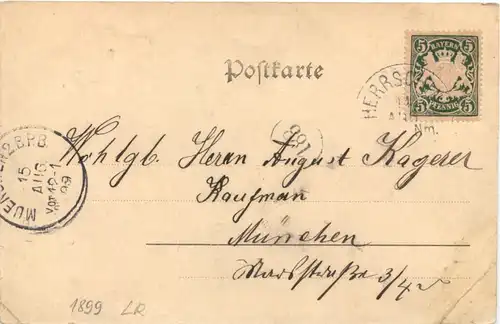 5 BAYERN 5
5 PFENNIG 5
Postkarte
HERRSC
AUG
Nm.
188
MUENCHEN 2.B.P.B.
15
AUG
Vor 12-1
99
Wohlgb. Herrn August Kagerer
Kaufman
München
3/4
1899 LR